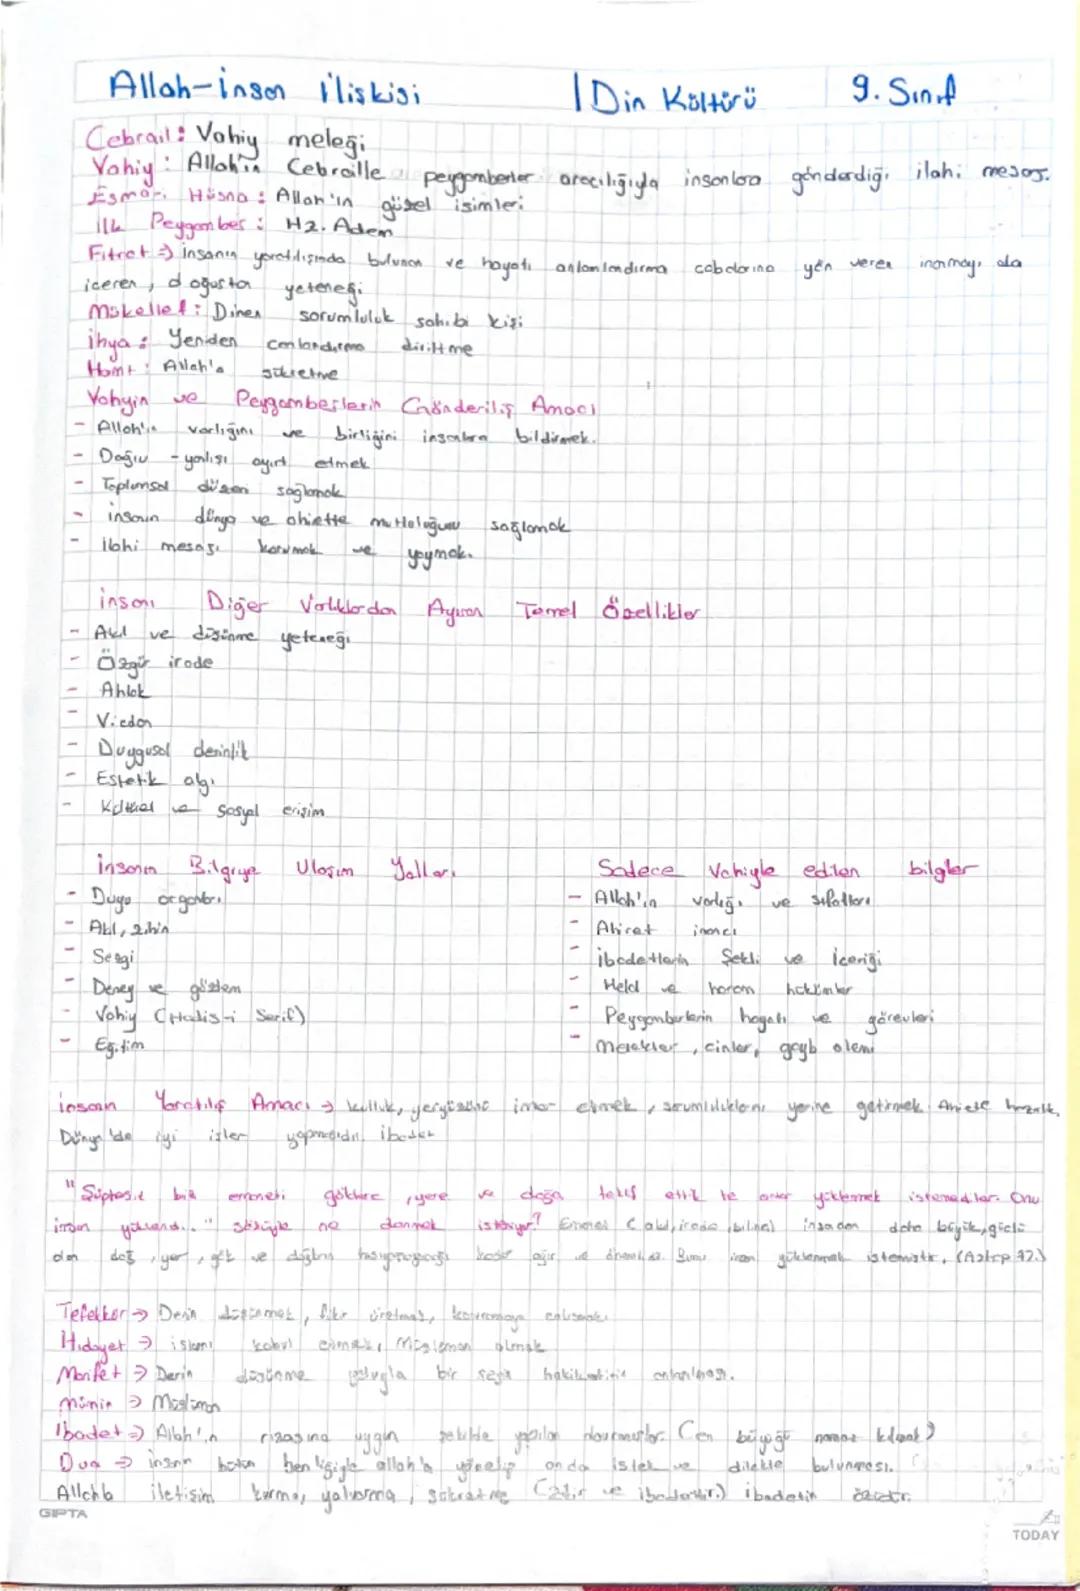 Allah-insan ilişkisi | Din Kültürü 9. Sınıf
Cebrail: Vahiy meleği
Vahiy: Allah'ın Cebraille peygamberler aracılığıyla insanlara gönderdiği ilahi mesaj.
Esma-i Hüsna: Allah'ın güzel isimleri
ilk Peygamber: Hz. Adem
Fıtrat => insanın yaratılışında bulunan ve hayatı anlamlandırma cabalarına yön veren inanmayı da
iceren, doğuştan yeteneği
Mükellef: Dinen sorumluluk sahibi kişi
ihya: Yeniden canlandırma diriltme
Hamt: Allah'a şükretme
Vahyin ve Peygamberlerin Gönderiliş Amacı
- Allah'ın varlığını ve birliğini insanlara bildirmek.
- Doğru - yanlışı ayırt etmek
- Toplumsal düzeni sağlamak
- insanın dünya ve ahirette mutluluğunu sağlamak
- ilahi mesajı korumak ve yaymak.
insanı Diğer Varlıklardan Ayıran Temel Özellikler
- Akıl ve düşünme yeteneği
- Özgür irade
- Ahlak
- Vicdan
- Duygusal derinlik
- Estetik algı
- Kültürel ve sosyal erişim
insanın Bilgiye Ulaşım Yolları
- Duyu organları
- Akıl, zihin
- Sezgi
- Deney ve gözlem
- Vahiy (Hadis-i Şerif)
- Eğitim
Sadece Vahiyle edilen bilgiler
- Allah'ın varlığı ve sıfatları
- Ahiret inancı
- ibadetlerin Şekli ve İçeriği
- Helal ve haram hükümler
- Peygamberlerin hayatı ve görevleri
- melekler, cinler, gayb alemi
insanın Yaratılış Amacı → kulluk, yeryüzünü imar etmek, sorumluluklarını yerine getirmek Ahirete hazırlık,
Dünya'da iyi işler yapmadıdır ibadet
"Şüphesiz biz emaneti göklere, yere ve dağa teklif ettik te onlar yüklenmek istemediler. Onu
insan yüklendi.." sözüyle ne demek isteniyor? Emanet (akıl, irade, bilinç) insandan daha büyük, güclü
olan dağ, yer, gök ve dağların taşıyamayacağı kadar ağır ve önemlidir. Bunu insan yüklenmek istemiştir. (Ahzap 72.)
Tefekkür → Derin düşünmek, fikir üretmek, kavramaya calışmak
Hidayet → islamı kabul etmek, Müslüman olmak
Marifet → Derin düşünme yoluyla bir şeyin hakikatinin anlaşılması.
mümin → Müslüman
İbadet → Allah'ın rızasına uygun şekilde yapılan davranışlar. (en büyüğü namaz kılmak)
Dua → insanın bütün benliğiyle allah'a yönelip ondan istek ve dilekte bulunması.
Allahla iletişim kurma, yalvarma, şükretme (zikir ve ibadettir.) ibadetin özüdür.
GIPTA
TODAY